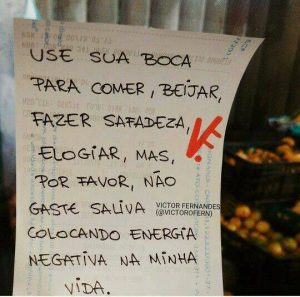 USE SUA BOCA
PARA COMER, BEIJAR,
FAZER SAFADEZA,
ELOGIAR, MAS,
POR FAVOR, NÃO
GASTE SALIVA
VICTOR FERNANDES
(@VICTOROFERN)
COLOCANDO ENERGIA
NEGATIVA NA MINHA
VIDA.